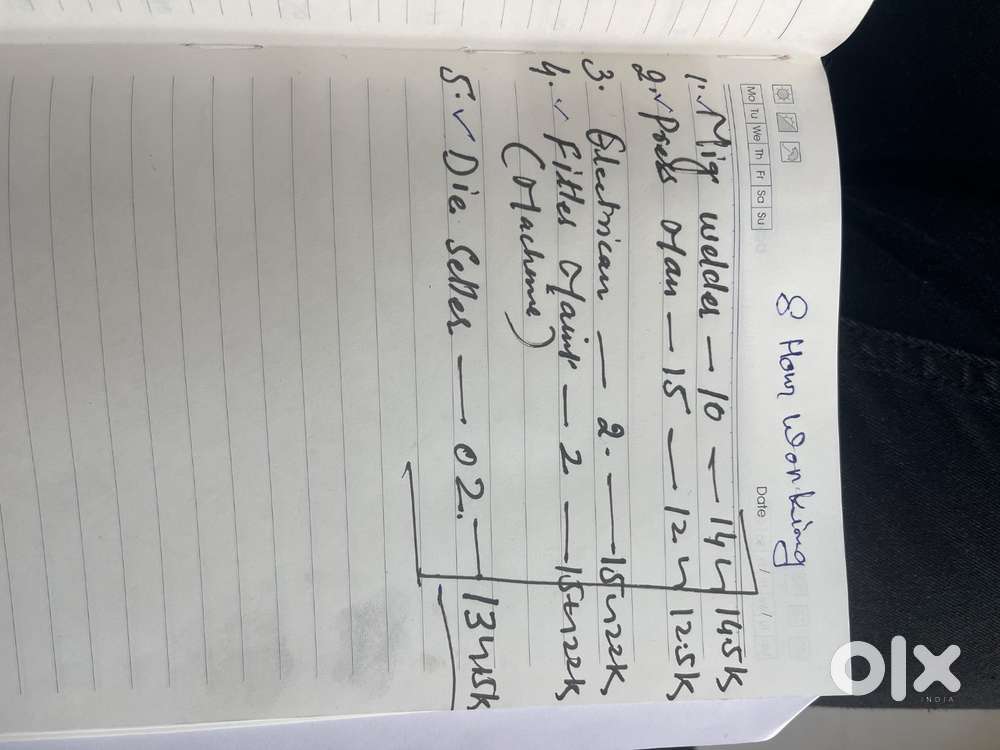 8 Hour Working
Date
Mo Tu We Th Fr Sa Su
1. Mig welder — 10 — 14 14.5K
2. Press Man — 15 — 12. 12.5K
3. Electrican — 2. — 15 22K
4. Fitter Maint — 2 — 15 22K
(Machine)
5. Die Setter — 02. — 13 15K
olx
INDIA